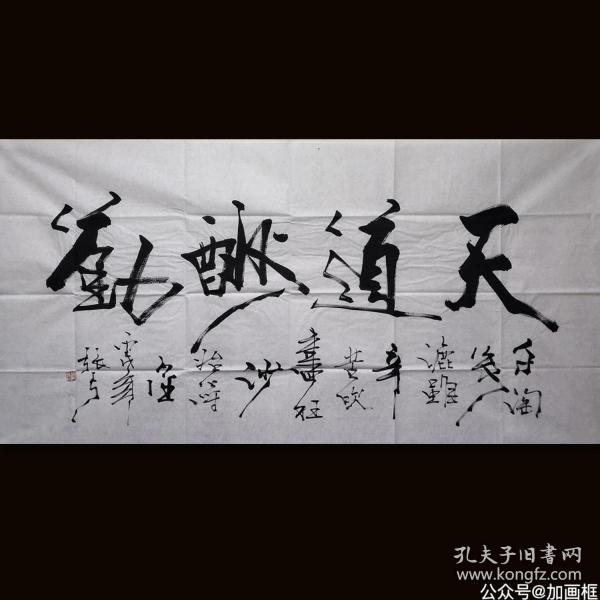 天道酬勤
千淘
漉雖
辛
苦吹
盡狂
沙
始得
孔夫子旧书网
www.kongfz.com
公众号@加画框